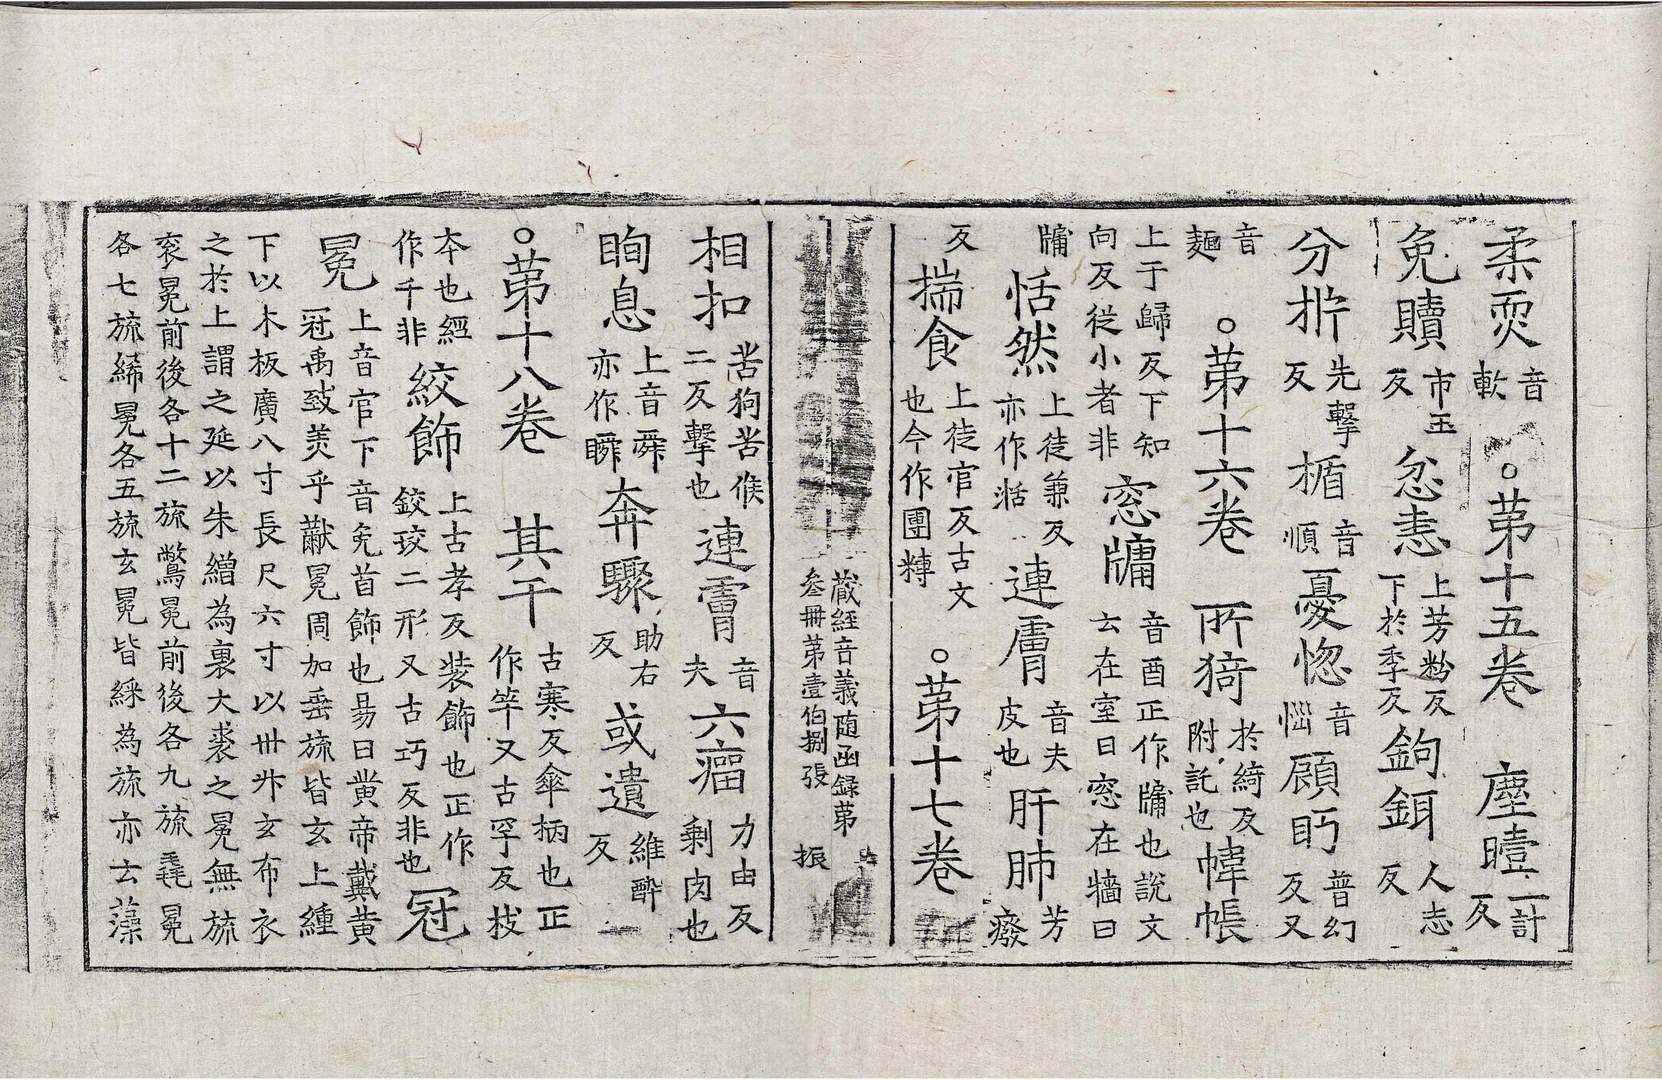 柔耎音軟　○苐十五卷　塵曀一計反
免贖市玉反　忿恚上芳粉反下於季反　鉤鉺人志反
分㭊先擊反　楯音順　憂惚音惱　顧眄普幻反又
音麵　○苐十六卷　所猗於綺反附託也　幃帳
上于歸反下知向反從小者非　窓牗音酉正作牗也說文云在室曰窓在牆曰
牗　恬然上徒兼反亦作㓉　連膚音夫皮也　肝肺芳癈
反　揣食上徒官反古文也今作團糐　○苐十七卷
藏經音義随函録苐
叁冊苐壹伯捌張　振
相扣苦狗苦候二反擊也　連膚音夫　六瘤力由反剩肉也
眴息上音舜亦作瞬　奔驟助右反　或遺維醉反
○苐十八卷　其干古寒反傘柄也正作竿又古罕反枝
夲也經作千非　絞飾上古孝反装飾也正作鉸㺒二形又古巧反非也　冠
冕上音官下音免首飾也昜曰黄帝戴黄冠禹致羙乎黻冕周加垂旒皆玄上纁
下以木板廣八寸長尺六寸以卅升玄布衣
之於上謂之延以朱繒為裏大裘之冕無旒
衮冕前後各十二旒鷩冕前後各九旒毳冕
各七旒絺冕各五旒玄冕皆綵為旒亦云藻